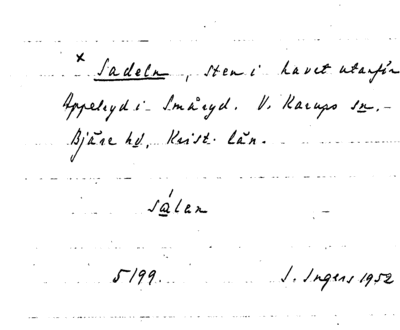 × Sadeln, sten i havet utanför
Äppelryd i Småryd. V. Karups sn.
Bjäre hd, Krist. län.
sálen
5199. I. Ingers 1952